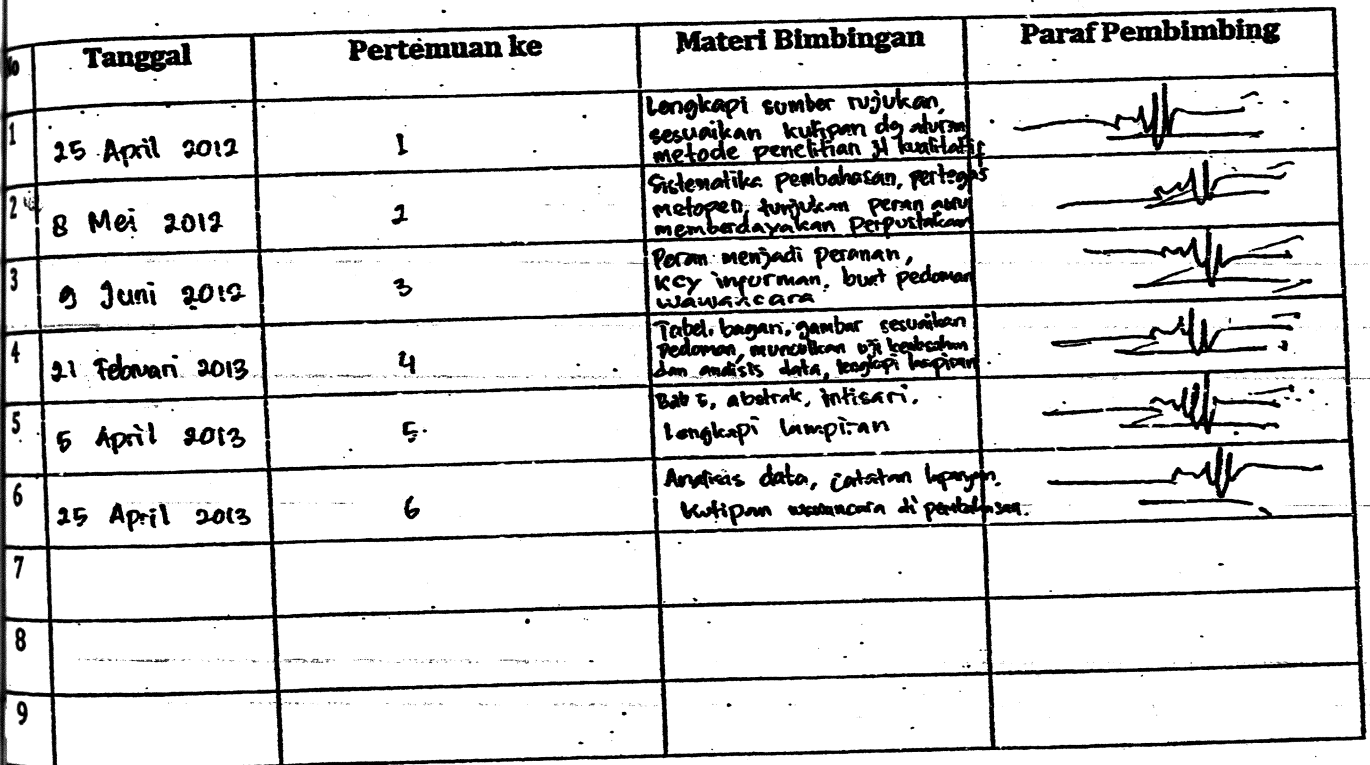 No Tanggal Pertemuan ke Materi Bimbingan Paraf Pembimbing
1 25 April 2012 1 Lengkapi sumber rujukan,
sesuaikan kutipan dg aturan
metode penelitian yl kualitatif
2 8 Mei 2012 2 Sistematika pembahasan, pertegas
metopen, tunjukan peran
memberdayakan Perpustakaan
3 9 Juni 2012 3 Peran menjadi peranan,
key informan, buat pedoman
wawancara
4 21 Februari 2013 4 Tabel, bagan, gambar sesuaikan
Pedoman, munculkan uji keabsahan
dan analisis data, lengkapi lampiran
5 5 April 2013 5. Bab 5, abstrak, intisari,
Lengkapi lampiran
6 25 April 2013 6 Analisis data, catatan lapangan,
kutipan wawancara di pembahasan.
7
8
9